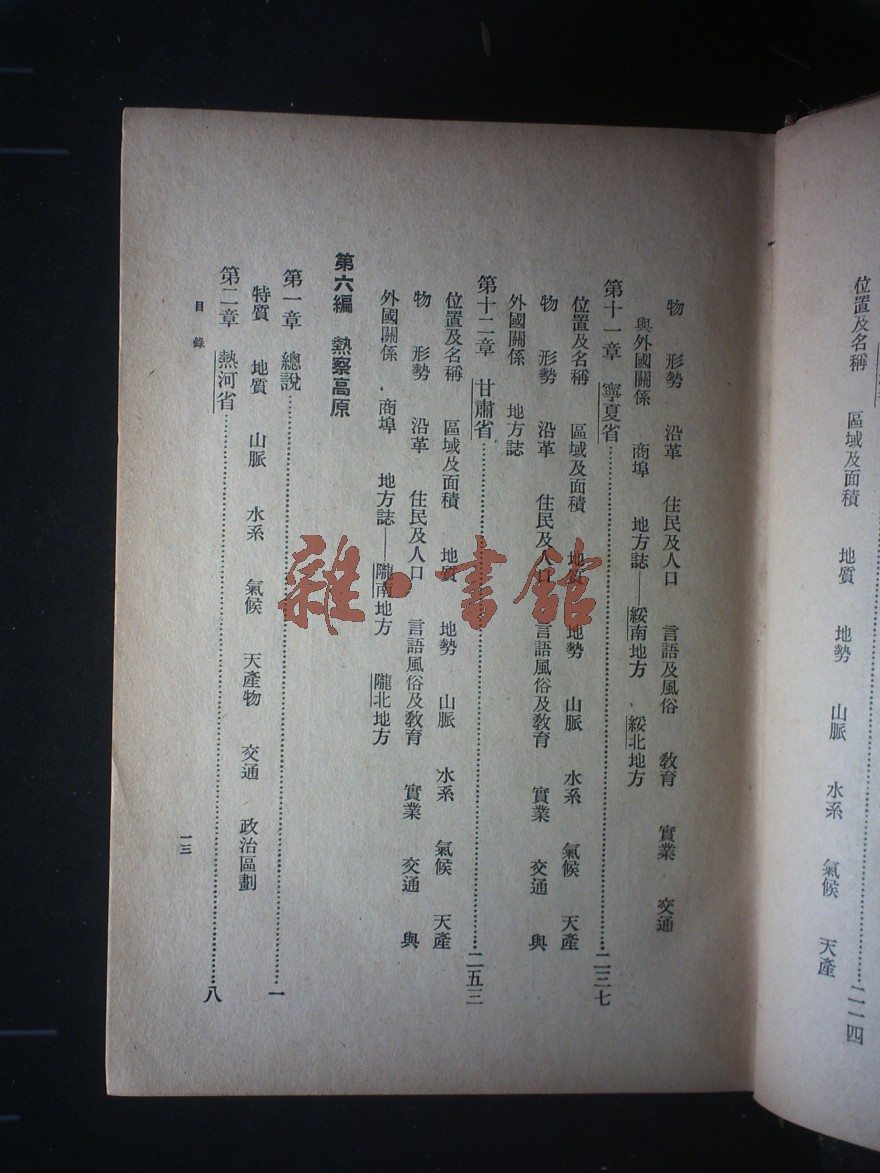 位置及名稱 區域及面積 地質 地勢 山脈 水系 氣候 天產
二一四
物 形勢 沿革 住民及人口 言語及風俗 教育 實業 交通
與外國關係 商埠 地方誌——綏南地方 綏北地方
第十一章 寧夏省……二三七
位置及名稱 區域及面積 地質 地勢 山脈 水系 氣候 天產
物 形勢 沿革 住民及人口 言語風俗及教育 實業 交通 與
外國關係 地方誌
第十二章 甘肅省……二五三
位置及名稱 區域及面積 地質 地勢 山脈 水系 氣候 天產
物 形勢 沿革 住民及人口 言語風俗及教育 實業 交通 與
外國關係 商埠 地方誌——隴南地方 隴北地方
第六編 熱察高原
第一章 總說……一
特質 地質 山脈 水系 氣候 天產物 交通 政治區劃
第二章 熱河省……八
目錄 一三
雜·書館